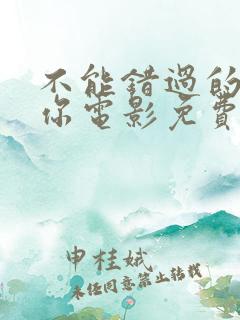 不能错过的
你电影免费
申桂娥
未经同意禁止转载